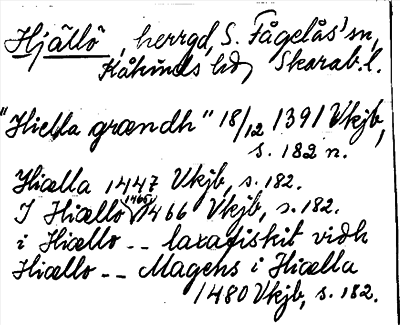 Hjällö, herrgd, S. Fågelås' sn,
Kåkinds hd, Skarab. l.
"Hiella grændh" 18/12 1391 Vkjb,
s. 182 n.
Hiælla 1447 Vkjb, s. 182.
I Hiællo (1465) 1466 Vkjb, s. 182.
i Hiællo -- laxafiskit vidh
Hiællo -- Magens i Hiælla
1480 Vkjb, s. 182.